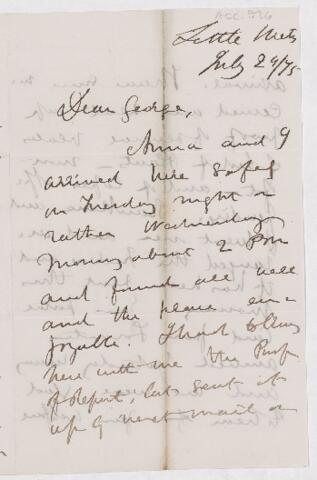 ACC. 926
Little Metis
July 29/75
Dear George,
Anna and I
arrived here safely
on Tuesday night or
rather Wednesday
morning about 2
and found all well
and the place en-
joyable. I had
here with me the Proof
of Report, but sent it
up by next mail on